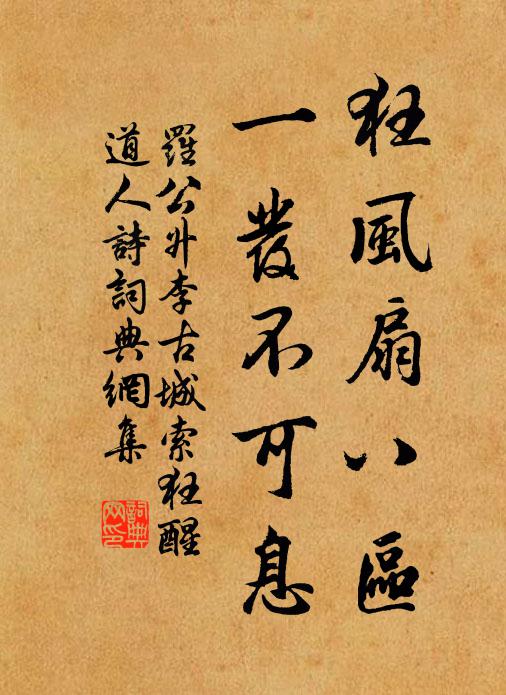 狂風扇八區
一發不可息
羅公升李古城索狂醒
道人詩詞典網集
詞典
网印